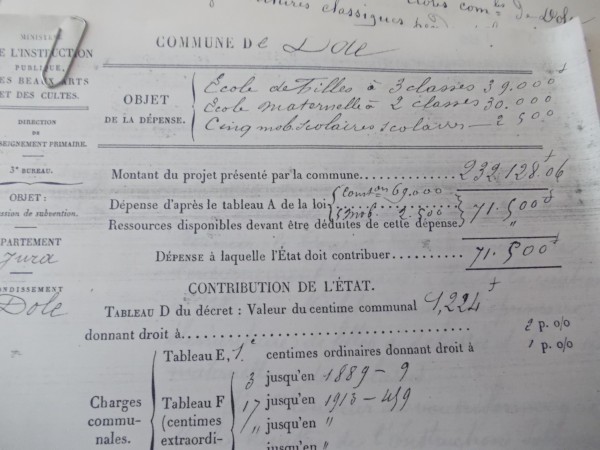 classiques
de Dole
MINISTÈ
E L'INSTRUCTION
PUBLIQUE,
ES BEAUX-ARTS
ET DES CULTES.
DIRECTION
DE
SEIGNEMENT PRIMAIRE.
3e BUREAU.
OBJET :
ssion de subvention.
PARTEMENT
Jura
ONDISSEMENT
Dole
COMMUNE De Dole
OBJET
DE LA DÉPENSE.
Ecole de filles à 3 classes 39.000 f
Ecole maternelle à 2 classes 30.000
Cinq mob. scolaires scolaires — 2 500
Montant du projet présenté par la commune............ 232 128.06
Dépense d'après le tableau A de la loi { Conston 69.000 Mob 2.500 } 71.500 f
Ressources disponibles devant être déduites de cette dépense. "
DÉPENSE à laquelle l'État doit contribuer.......... 71.500 f
CONTRIBUTION DE L'ÉTAT.
TABLEAU D du décret : Valeur du centime communal 1,224 f
donnant droit à................................................ 2 p. 0/0
Tableau E, 1e centimes ordinaires donnant droit à 1 p. 0/0
Charges
commu-
nales.
Tableau F
(centimes
extraordi-
3 jusqu'en 1889 – 9
17 jusqu'en 1913 – 459
" jusqu'en "
jusqu'en "